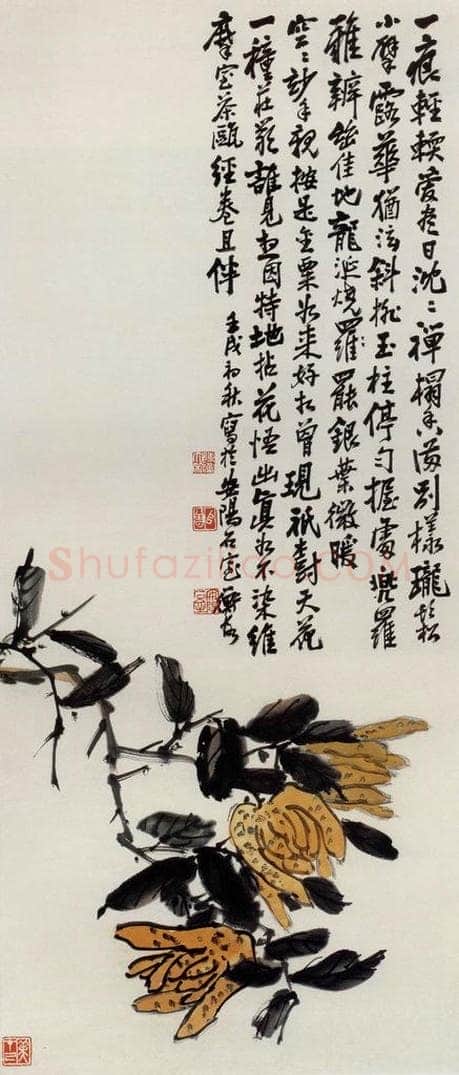 一痕輕輭尽日沈沈禪榻香満別樣瓏鬆
小擘露華猶泫斜搊玉柱停勻握處兜羅
雅佳地龍涎燒罷銀葉微暖
空空妙手親按是金粟如来好相曾現祇樹天花
一種莊嚴誰見想因特地拈花悟出真如不染維
摩室茶甌經卷且伴
壬戌初秋寫於安陽石室
Shufazidian.COM